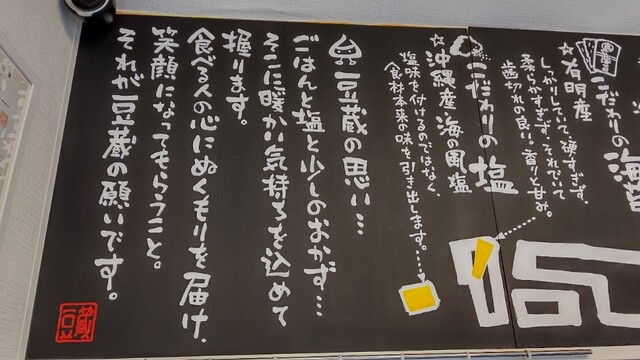 こだわりの海苔
☆有明産
しっかりしていて、硬すぎず、
柔らかすぎず、それでいて
歯切れの良い、香りと甘み。
こだわりの塩
☆沖縄産海の風塩
塩味を付けるのではなく、
食材本来の味を引き出します。…
豆蔵の思い…
ごはんと塩と少しのおかず…
そこに暖かい気持ちを込めて
握ります。
食べる人の心にぬくもりを届け、
笑顔になってもらうこと。
それが豆蔵の願いです。
豆蔵